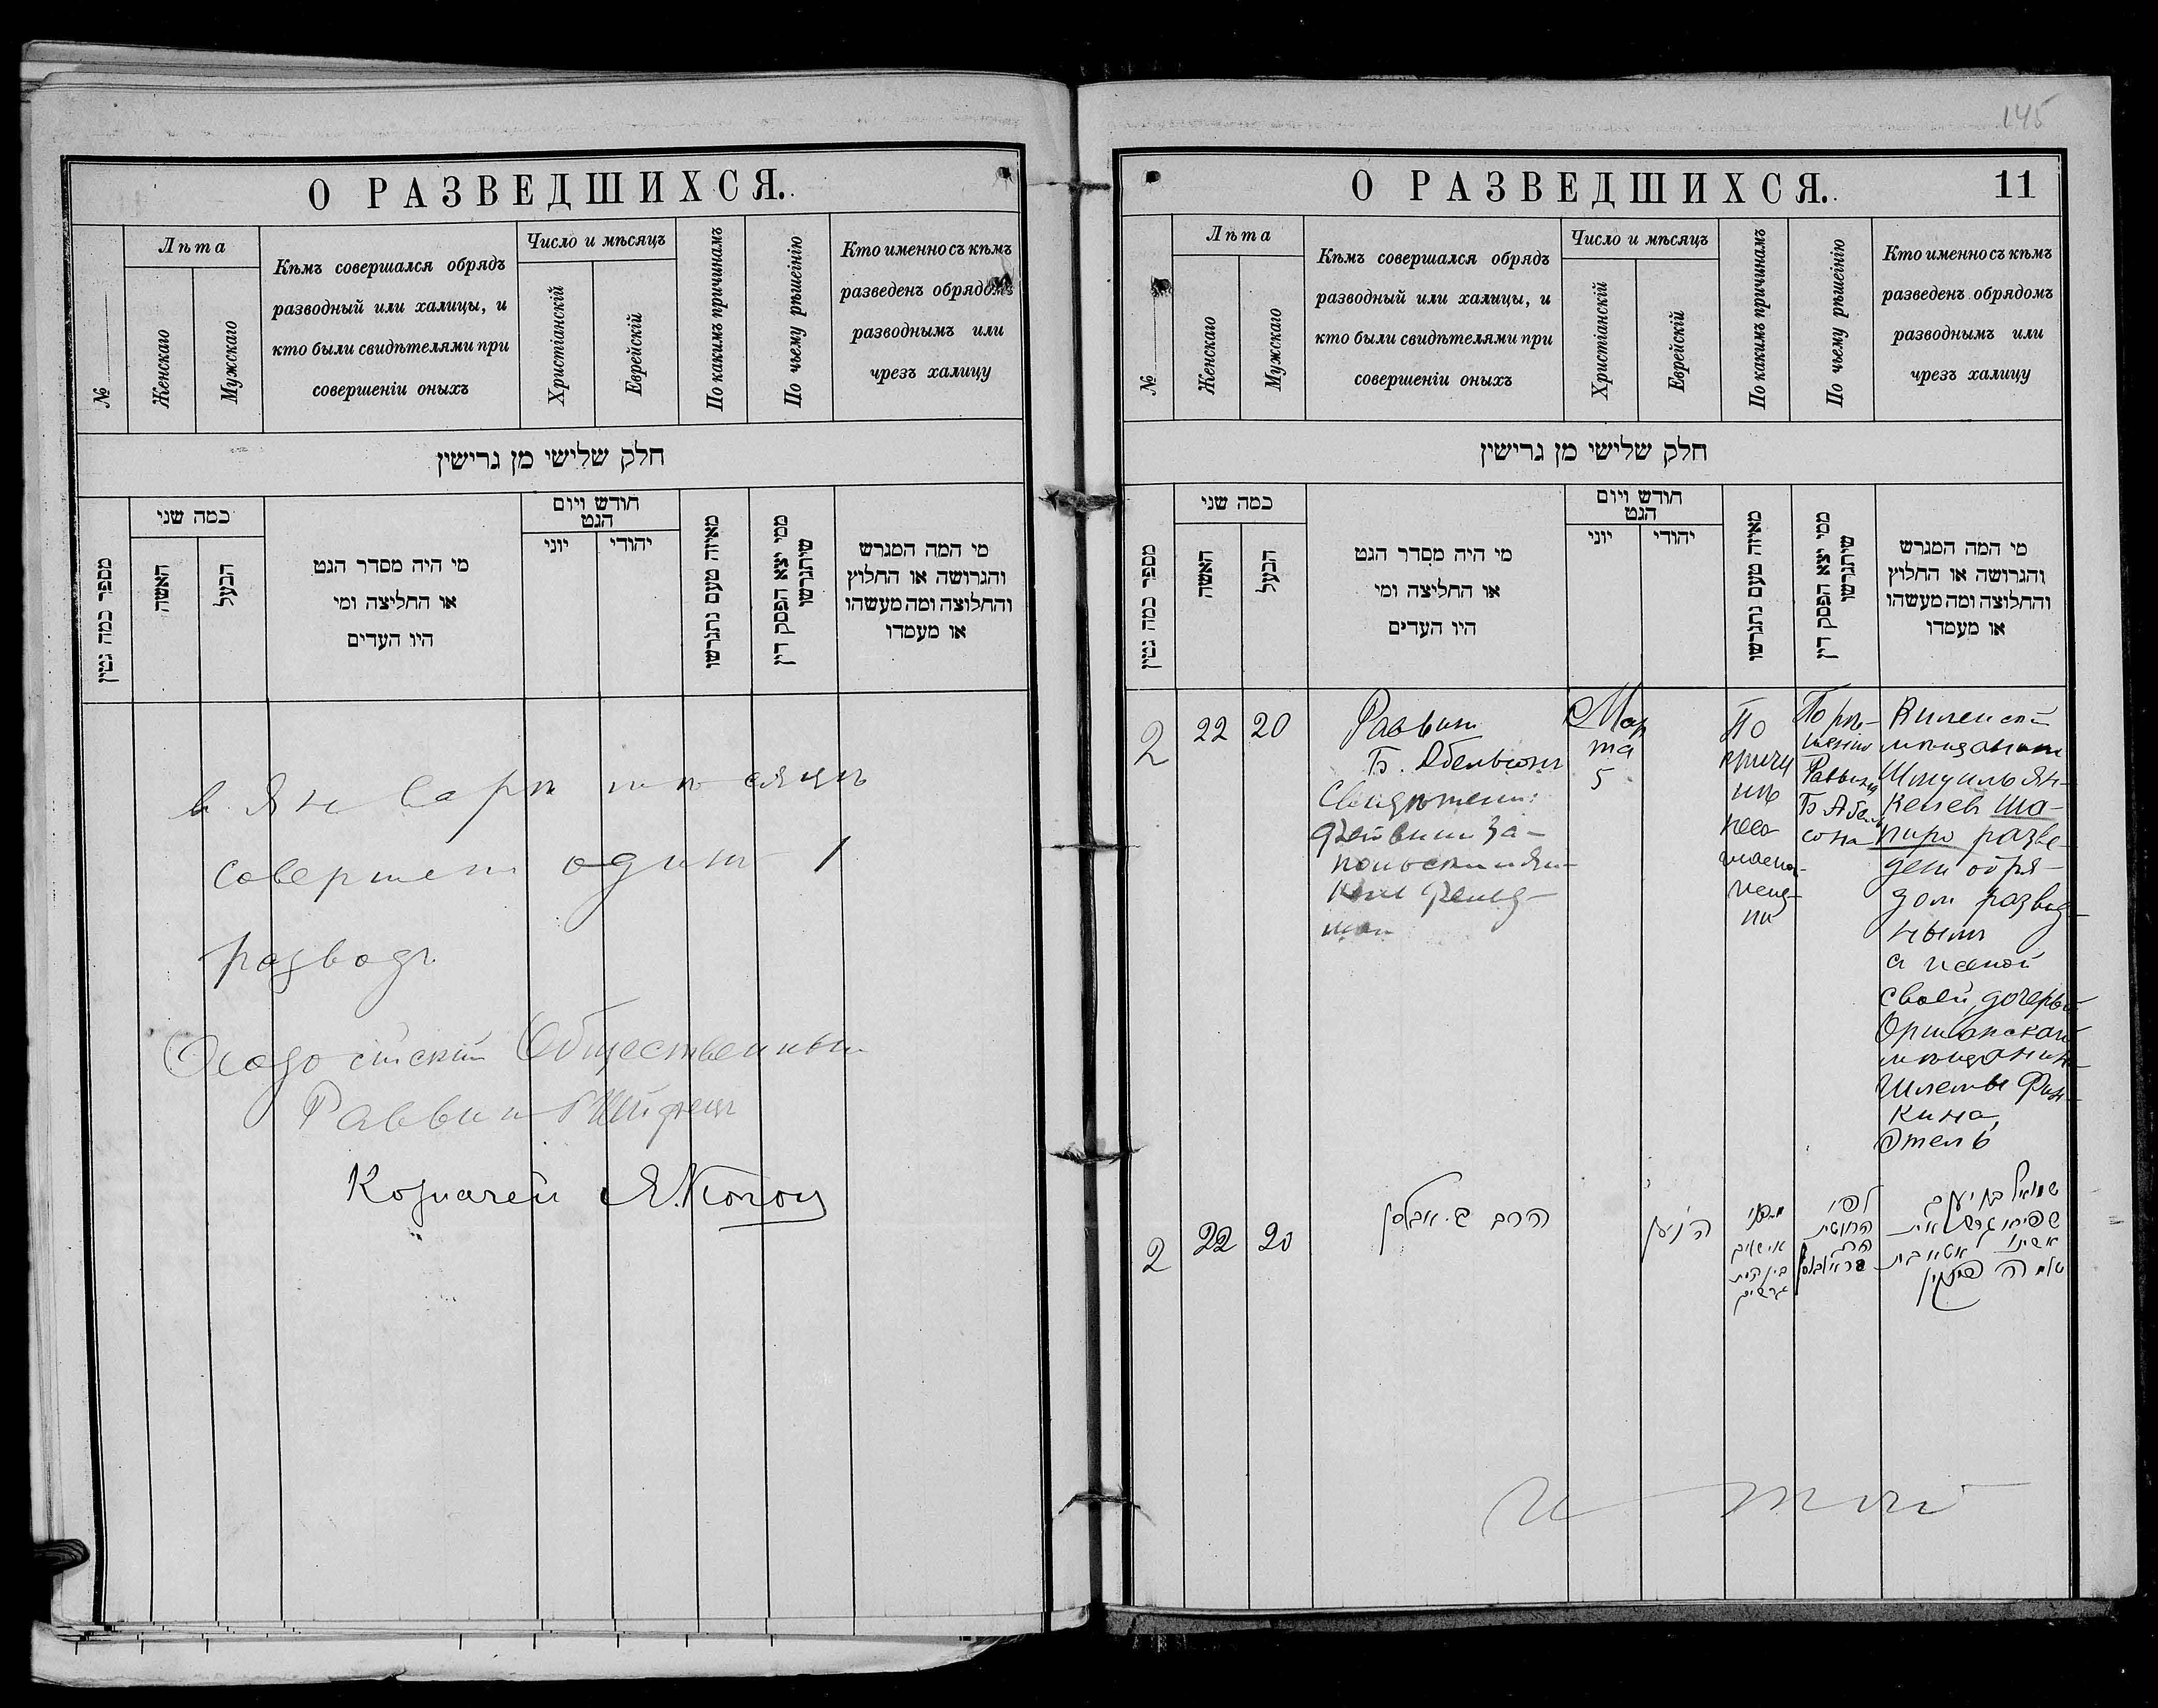 О РАЗВЕДШИХСЯ.
№
Лѣта
Женскаго
Мужскаго
Кѣмъ совершался обрядъ
разводный или халицы, и
кто были свидѣтелями при
совершеніи оныхъ
Число и мѣсяцъ
Христіанскій
Еврейскій
По какимъ причинамъ
По чьему рѣшеінію
Кто именно съ кѣмъ
разведенъ обрядомъ
разводнымъ или
чрезъ халицу
חלק שלישי מן גרישין
מספר כמה גטין
כמה שני
האשה
הבעל
מי היה מסדר הגט
או החליצה ומי
היו העדים
חודש ויום
הגט
יוני
יהודי
מאיזה טעם נתגרשו
ממי יצא הפסק דין
שיתגרשו
מי המה המגרש
והגרושה או החלוץ
והחלוצה ומה מעשהו
או מעמדו
в Январѣ мѣсяцѣ
совершен один 1
разводъ
Общественный
Раввин
Козначей Я.
145
О РАЗВЕДШИХСЯ.
11
№
Лѣта
Женскаго
Мужскаго
Кѣмъ совершался обрядъ
разводный или халицы, и
кто были свидѣтелями при
совершеніи оныхъ
Число и мѣсяцъ
Христіанскій
Еврейскій
По какимъ причинамъ
По чьему рѣшеінію
Кто именно съ кѣмъ
разведенъ обрядомъ
разводнымъ или
чрезъ халицу
חלק שלישי מן גרישין
מספר כמה גטין
כמה שני
האשה
הבעל
מי היה מסדר הגט
או החליצה ומי
היו העדים
חודש ויום
הגט
יוני
יהודי
מאיזה טעם נתגרשו
ממי יצא הפסק דין
שיתגרשו
מי המה המגרש
והגרושה או החלוץ
והחלוצה ומה מעשהו
או מעמדו
2
22
20
Раввин
Б. Абельсон
Свидѣтели:
За-
польский Ян-
кель Фельд-
ман
Мар
та
5
По
причи
нѣ
несо
гласна
По рѣ-
шенію
Раввина
Б Абель
сона
Виленский
мѣщанинъ
Шмуиль Ян-
келев Ша-
пиро разве-
ден обря-
дом развод-
ным
с женой
своей, дочерью
Оршанскаго
мѣщанина
Шлемы Фин-
кина,
Этель
2
22
20
הרב ב. אבלסן
ה' ניסן
לפי
שמואל בן יעקב
שפירו גרש את
אשתו אטל בת
שלמה פינקין
Итого